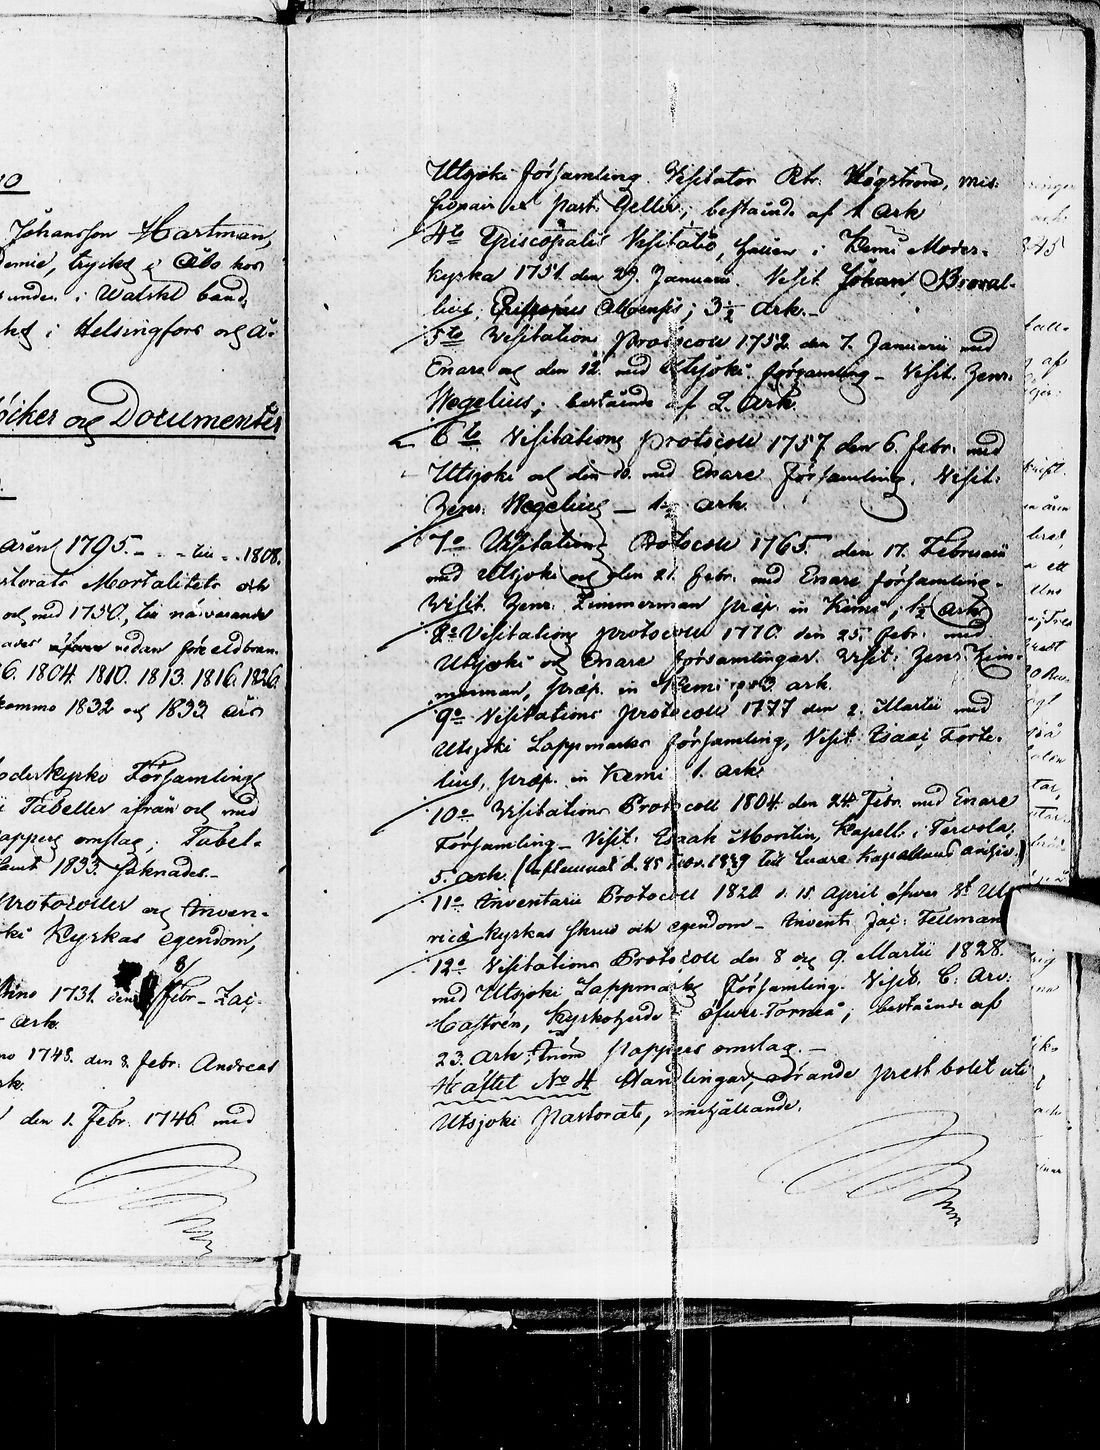 10
Johansson Hartman,
demie, tryckt i Åbo hos
under i Walskt band,
i Helsingfors och Å-
böiker och Documenter
åren 1795. - - - till - . 1808.
Mortalitets och
och med 1750, till närvarande
nedan före eldbran
6. 1804. 1810. 1813. 1816. 1826.
komma 1832 och 1833 års
oderkyrko Församlings
Tabeller ifrån och med
pappers omslag; Tabel-
samt 1833. saknades. -
Protocoller och Inven-
ki Kyrkas egendom,
8/
Anno 1731. den Febr. - Zac.
ark.
no 1748. den 8. Febr. Andreas
rk.
den 1. Febr. 1746. med
Utsjoki församling. Visitator Rtr. Högström, mis-
sionair et Past. Gelliv.; bestående af 1 Ark
4to Episcopalis Visitatio, hållen i Kemi Moder-
kyrka 1751. den 29. Januarii. Visit. Johan Broval-
lius, Episcopus Aboensis; 3 1/2 Ark. -
5to Visitations protocoll 1752 den 7. Januarii med
Enare och den 12. med Utsjoki församling - Visit. Henr.
Wegelius; bestående af 2. Ark.
6to Visitations protocoll 1757 den 6. Febr. med
Utsjoki och den 10. med Enare församling. Visit.
Henr. Wegelius - 1 1/2 ark.
7o Visitations Protocoll 1765. den 17. Februarii
med Utsjoki och den 21. Febr. med Enare församling -
Visit. Henr. Zimmerman præp. in Kemi; 1 1/2 ark
8o Visitations protocoll 1770. den 25. Febr. med
Utsjoki och Enare församlingar. Visit: Henr. Zim-
merman, præp. in Kemi; 3. ark.
9o Visitations protocoll 1777 den 2. Martii med
Utsjoki Lappmarks församling, Visit. Esaai. Forte-
lius, præp. in Kemi 1. ark.
10o Visitations Protocoll 1804. den 24. Febr. med Enare
Församling - Visit: Esaak Montin, Kapell. i Tervola;
5. ark. (aflemnat d. 25 Nov. 1889 till Enare Kapellans arkiv.)
11o Inventarii Protocoll 1820 d. 15 April öfver St Ul-
ricæ kyrkas skrud och egendom - Invent. Jac: Fellman
12o Visitations Protocoll den 8 och 9. Martii 1828.
med Utsjoki Lappmarks Församling. Visit. C: Arv:
Castrén, Kyrkoherde i öfwer-Torneå; bestående af
23. Ark. inom pappers omslag. -
Häftet No 4. Handlingar, rörande prestbolet uti
Utsjoki Pastorate, innehållande.